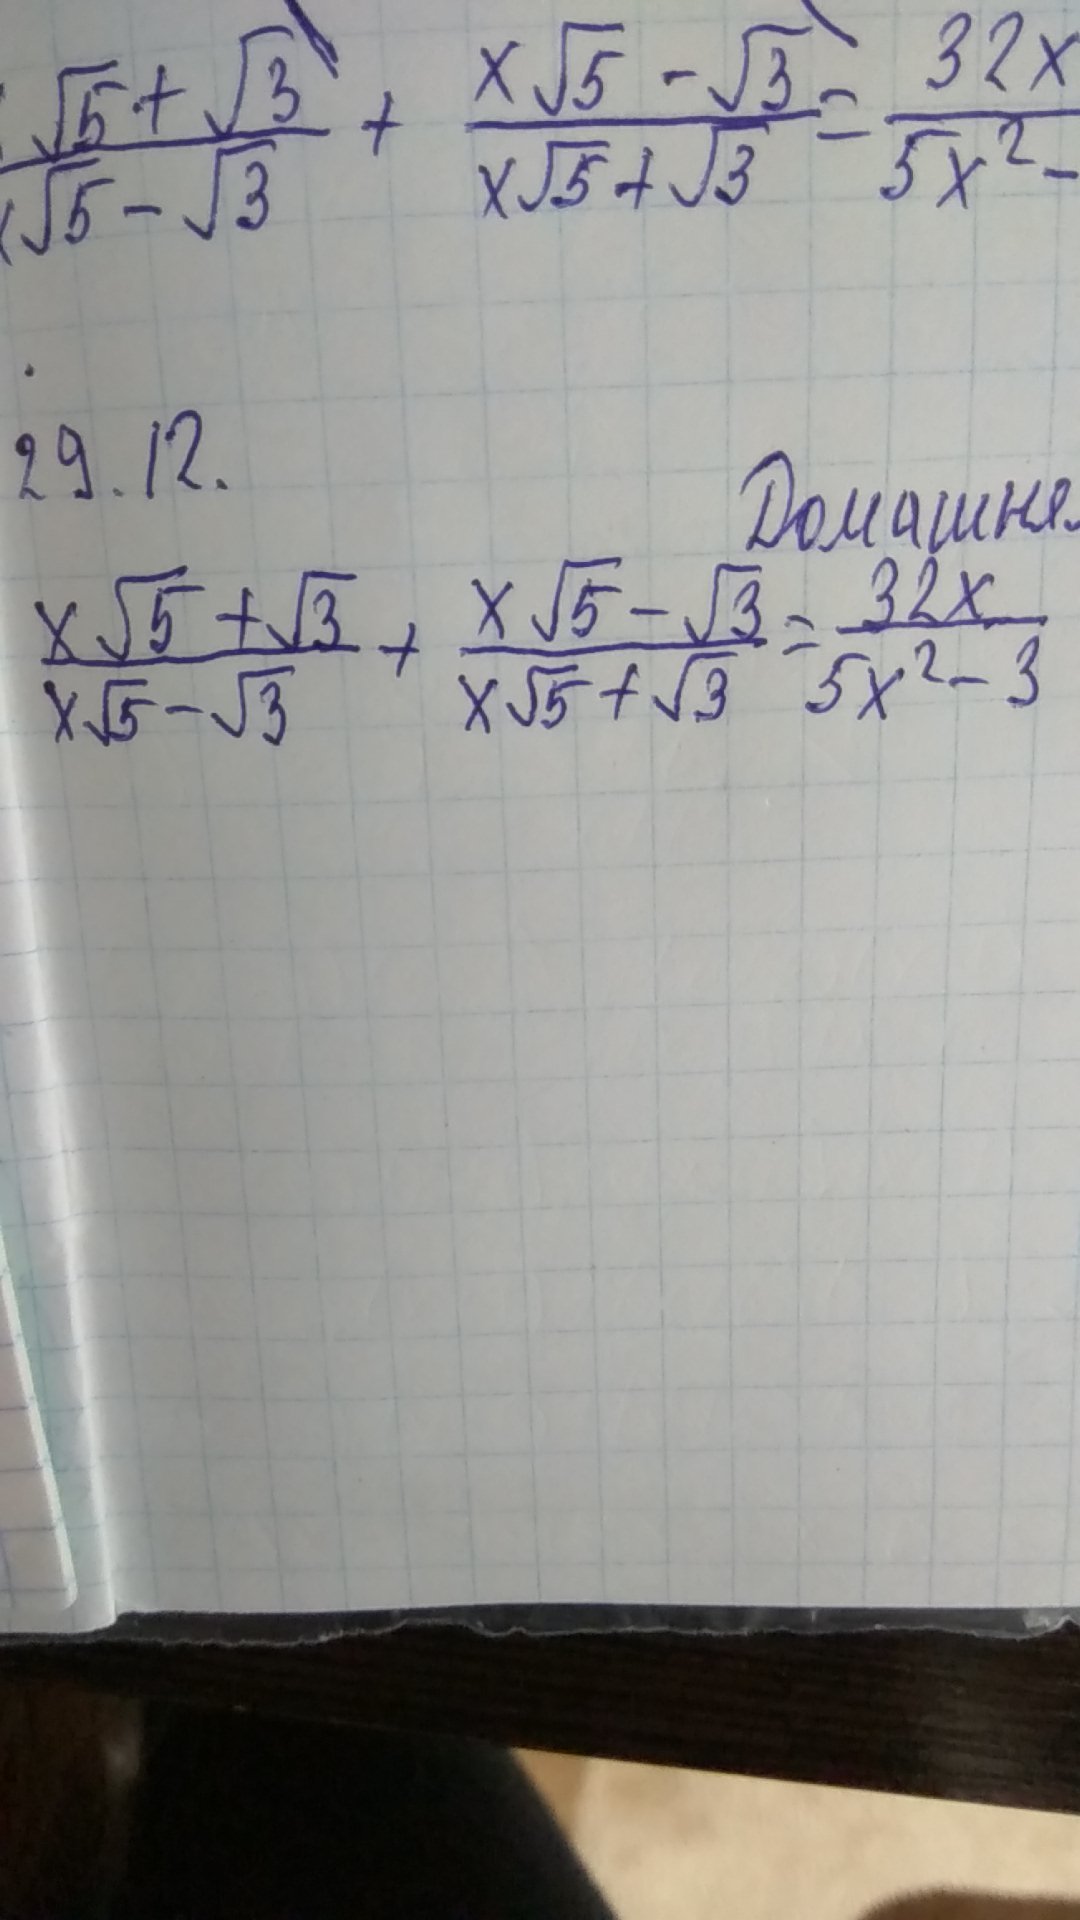 √5+√3 / x√5-√3 + x√5-√3 / x√5+√3 = 32x / 5x²-
29.12.
Домашня
x√5+√3 / x√5-√3 + x√5-√3 / x√5+√3 = 32x / 5x²-3